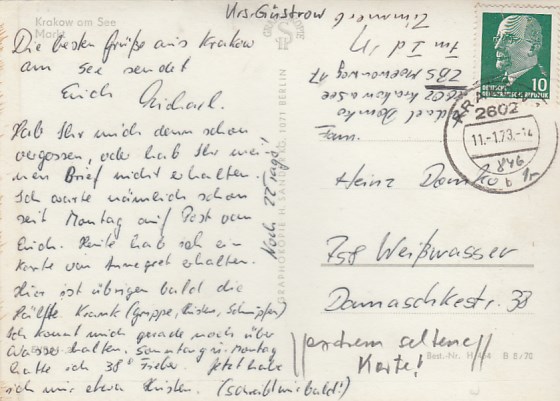 Krakow am See
Markt
Die besten Grüße aus Krakow
am See sendet
Euch Michael.
Hab Ihr mich denn schon
vergessen, oder hab Ihr mei-
nen Brief nicht erhalten.
Ich warte nämlich schon
seit Montag auf Post von
Euch. Heute hab ich ein
Karte von Annegret erhalten.
Hier ist übrigen bald die
Hälfte Krank (Grippe, Husten, Schnupfen)
Ich konnt mich gerade noch über
Wasser halten. Sonntag u. Montag
hatte ich 38° Fieber. Jetzt habe
ich nur etwas Husten. (schreibt mir bald!)
Noch 22 Tage!
GRAPHOKOPIE H. SANDER KG, 1071 BERLIN
Krs. Güstrow
Zimmer 6
2602 Krakow a See
DEUTSCHE
DEMOKRATISCHE REPUBLIK
10
2602
11.-1.73.-12
Heinz Domko
758 Weißwasser
Damaschkestr. 38
extrem seltene
Karte!
Best.-Nr. H 464 B 8/70